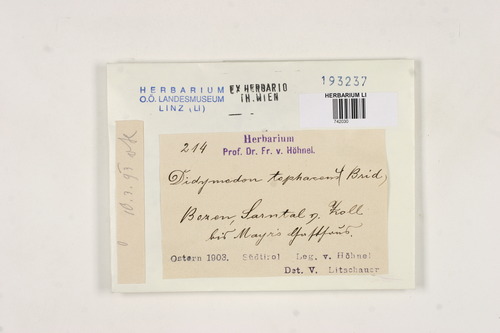 HERBARIUM
O.Ö. LANDESMUSEUM
LINZ (LI)
EX HERBARIO
TH. WIEN
193237
HERBARIUM LI
742030
214
Herbarium
Prof. Dr. Fr. v. Höhnel.
Didymodon (Brid)
Bozen, Sarntal v. Zoll
bis Mayr's Gasthaus.
Ostern 1903. Südtirol Leg. v. Höhnel
Det. V. Litschauer